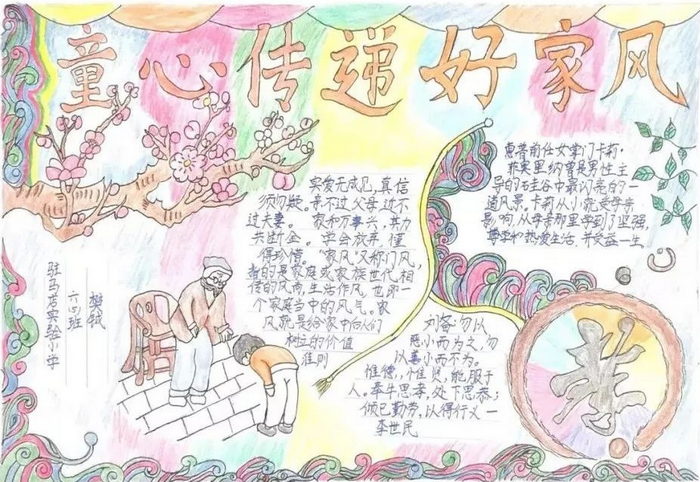 童心传递好家风
实爱无成见,真信
须勿疑。亲不过父母,近不
过夫妻。 家和万事兴,其力
关断金。 学会放弃,懂
得珍惜。“家风”又称门风,
指的是家庭或家族世代相
传的风尚,生活作风,也即一
个家庭当中的风气。家
风就是给家中后人们
树立的价值
准则
惠普前任女掌门卡莉·
菲奥里纳曾是男性主
导的硅谷中最闪亮的一
道风景。卡莉从小就受母亲
影响,从母亲那里学到了坚强,
尊崇和热爱生活,并受益一生。
刘备:勿以
恶小而为之,勿
以善小而不为。
惟德,惟贤,能服于
人。奉先思孝,处下思恭;
倾己勤劳,以得行义—
李世民
孝
驻马店实验小学
六四班